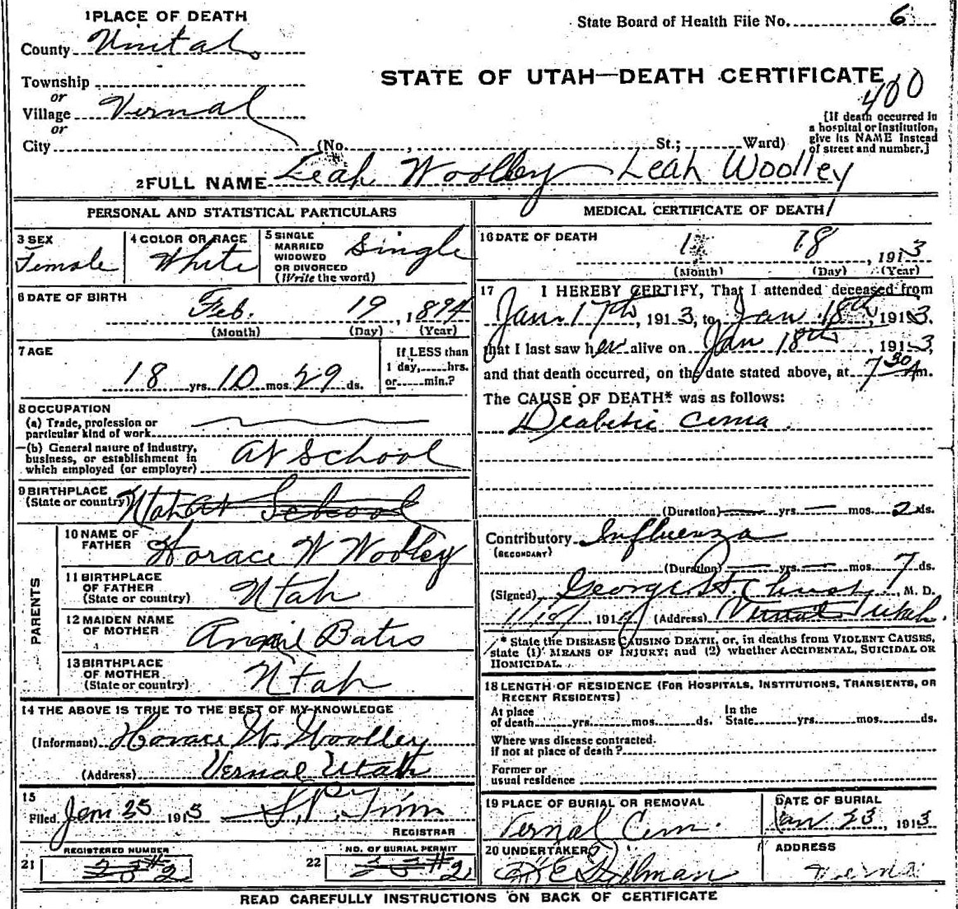 1 PLACE OF DEATH
State Board of Health File No. 6
County
Township
or
Village Vernal
or
City (No. , St.; Ward)
STATE OF UTAH—DEATH CERTIFICATE
400
[If death occurred in
a hospital or institution,
give its NAME instead
of street and number.]
2 FULL NAME Leah Woolley Leah Woolley
PERSONAL AND STATISTICAL PARTICULARS
3 SEX Female
4 COLOR OR RACE White
5 SINGLE
MARRIED
WIDOWED
OR DIVORCED
(Write the word) Single
6 DATE OF BIRTH Feb. 19, 1894
(Month) (Day) (Year)
7 AGE
18 yrs. 10 mos. 29 ds.
If LESS than
1 day, hrs.
or min.?
8 OCCUPATION
(a) Trade, profession or
particular kind of work
(b) General nature of industry,
business, or establishment in
which employed (or employer) At School
9 BIRTHPLACE
(State or country) Utah At School
PARENTS
10 NAME OF
FATHER Horace W Woolley
11 BIRTHPLACE
OF FATHER
(State or country) Utah
12 MAIDEN NAME
OF MOTHER Bates
13 BIRTHPLACE
OF MOTHER
(State or country) Utah
14 THE ABOVE IS TRUE TO THE BEST OF MY KNOWLEDGE
(Informant) Horace W. Woolley
(Address) Vernal Utah
15
Filed Jan 25 1913
REGISTRAR
21 REGISTERED NUMBER
#2
22 NO. OF BURIAL PERMIT
#2
MEDICAL CERTIFICATE OF DEATH
16 DATE OF DEATH 1 18, 1913
(Month) (Day) (Year)
17 I HEREBY CERTIFY, That I attended deceased from
Jan 17th, 1913, to Jan 18th, 1913,
that I last saw her alive on Jan 18th, 1913,
and that death occurred, on the date stated above, at 7 30 m.
The CAUSE OF DEATH* was as follows:
Diabetic Coma
(Duration) yrs. mos. 2 ds.
Contributory Influenza
(SECONDARY)
(Duration) yrs. mos. 7 ds.
(Signed) M. D.
191 (Address) Vernal Utah.
* State the DISEASE CAUSING DEATH, or, in deaths from VIOLENT CAUSES,
state (1) MEANS OF INJURY; and (2) whether ACCIDENTAL, SUICIDAL OR
HOMICIDAL.
18 LENGTH OF RESIDENCE (FOR HOSPITALS, INSTITUTIONS, TRANSIENTS, OR
RECENT RESIDENTS)
At place
of death yrs. mos. ds. In the
State yrs. mos. ds.
Where was disease contracted,
if not at place of death?
Former or
usual residence
19 PLACE OF BURIAL OR REMOVAL
Vernal Cem.
DATE OF BURIAL
Jan 23, 1913
20 UNDERTAKER
ADDRESS
READ CAREFULLY INSTRUCTIONS ON BACK OF CERTIFICATE